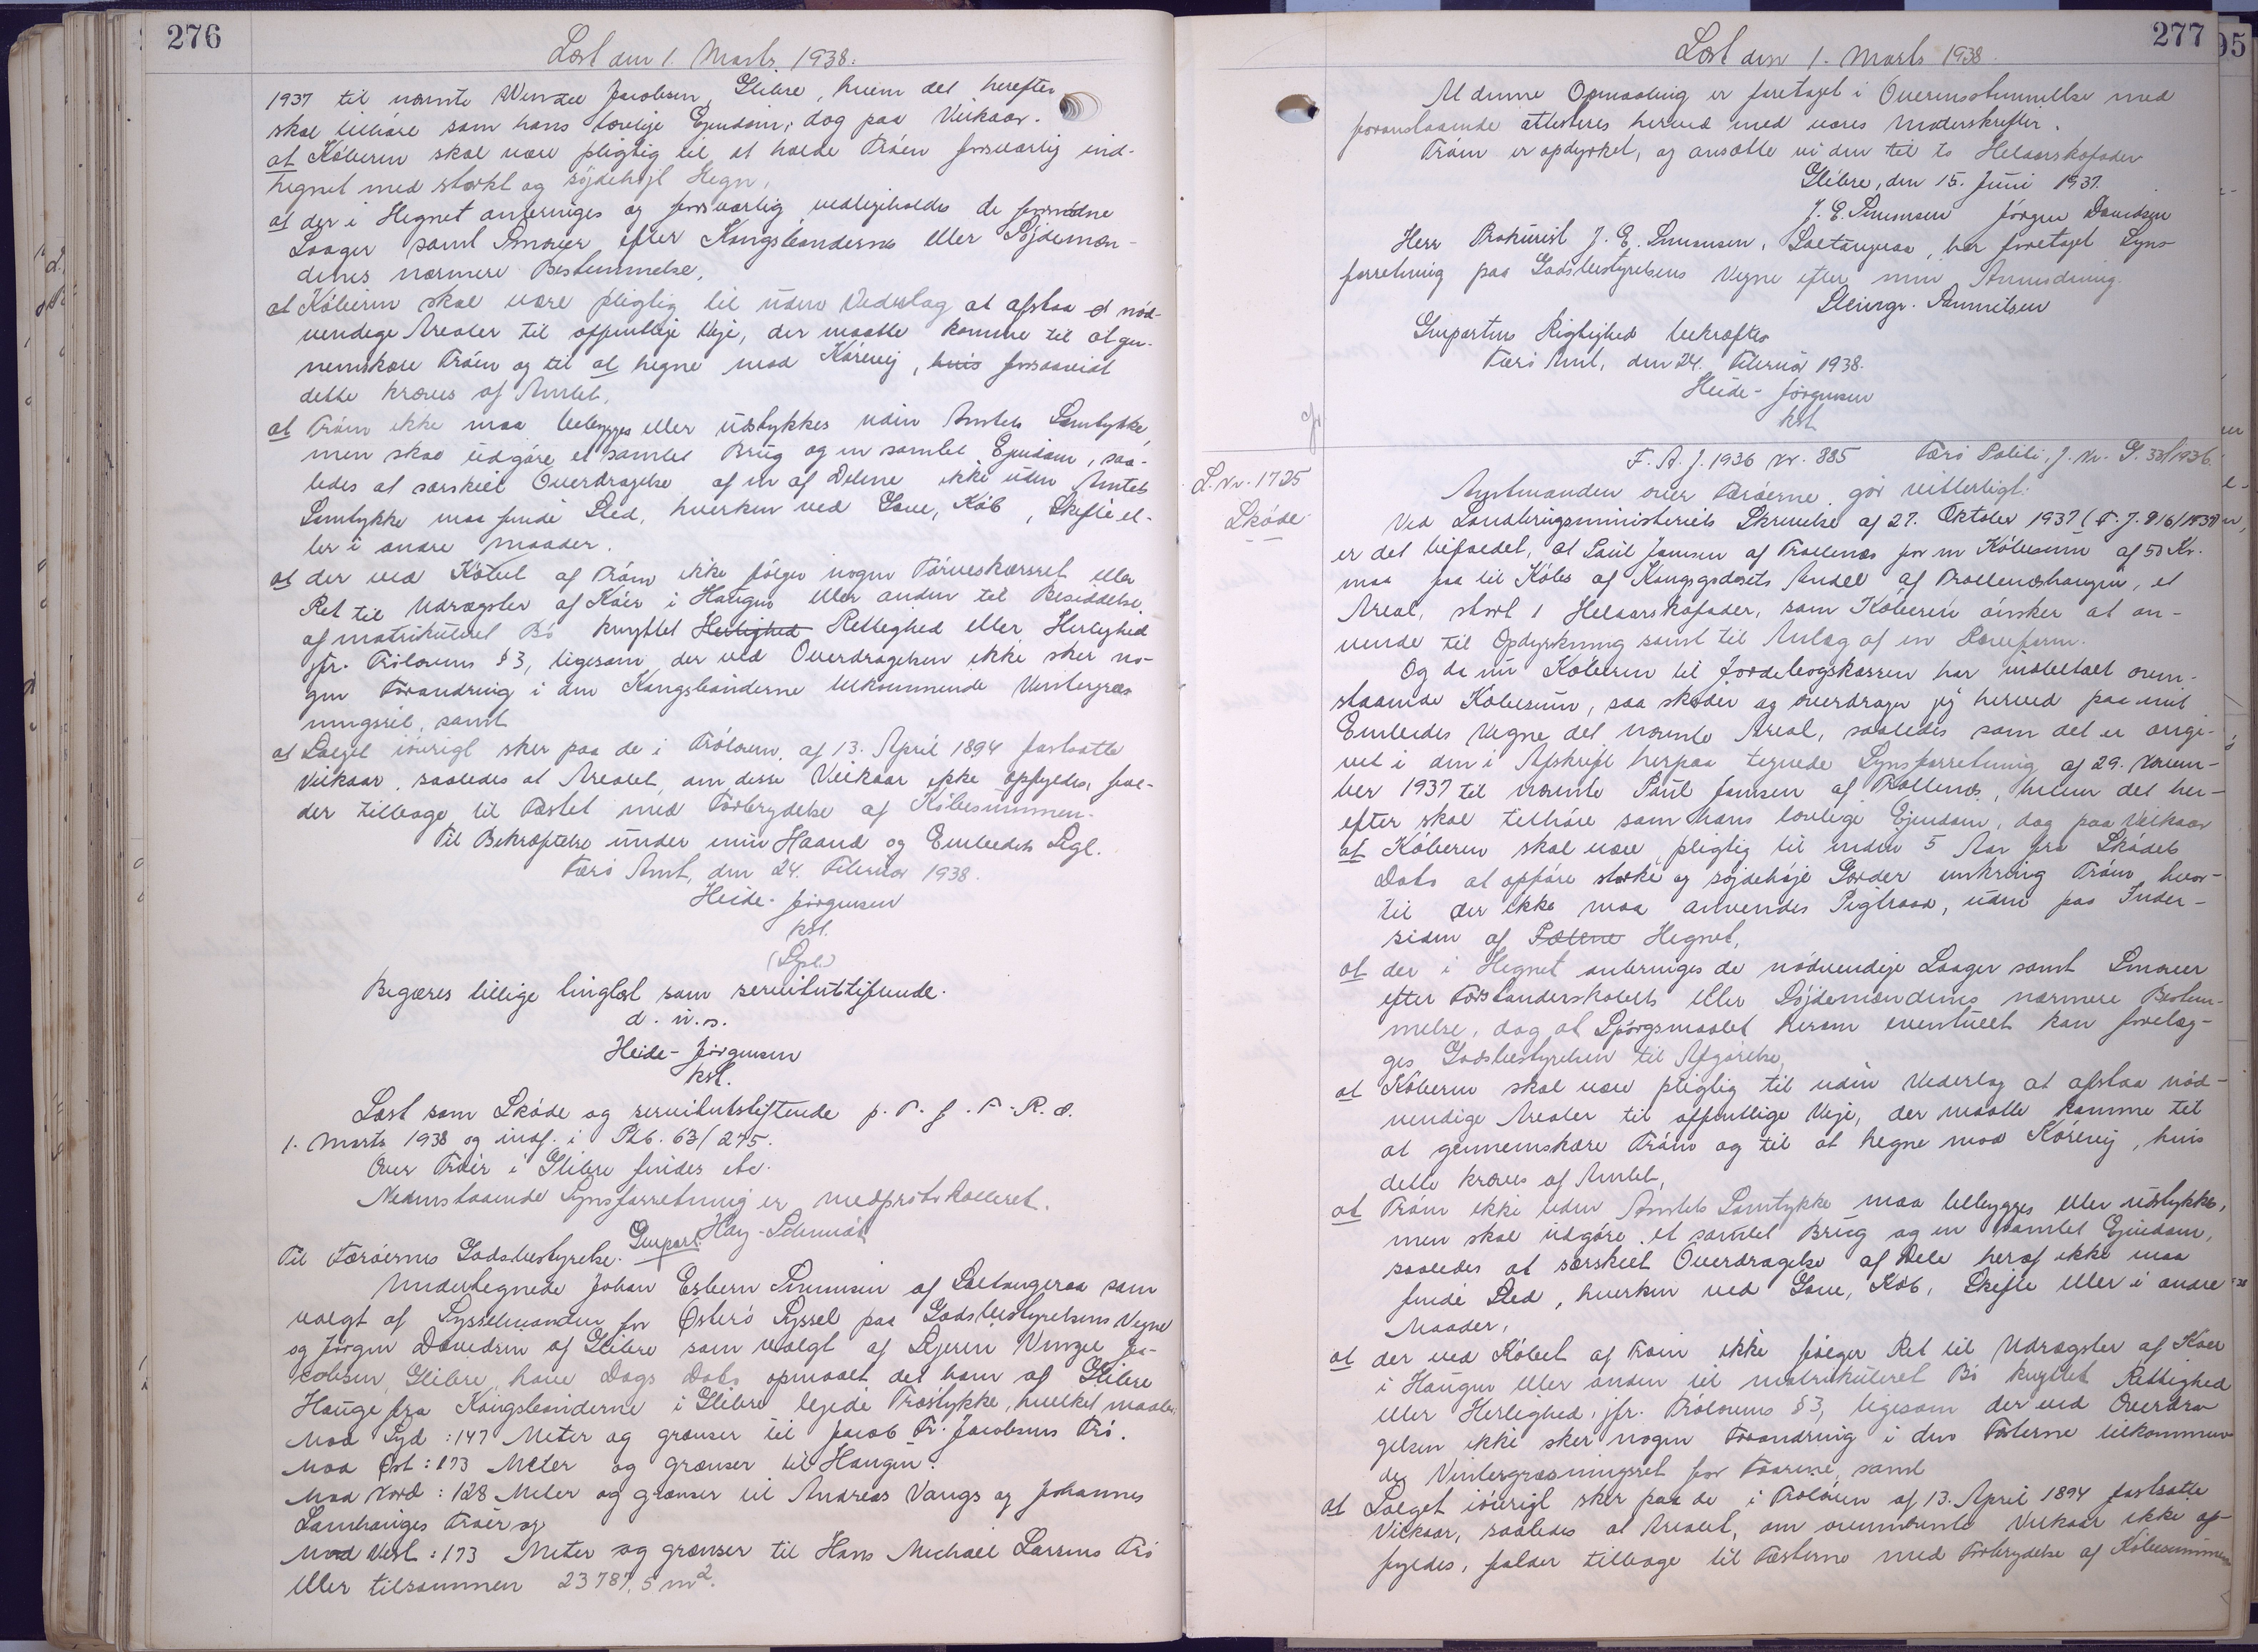 276
Læst den 1. Marts 1938.
1937 til nævnte Wenzel Jacobsen, Glibre, hvem det herefter
skal tilhøre som hans lovlige Ejendom; dog paa Vilkaar.
at Køberen skal være pligtig til at holde Trøen forsvarlig ind-
hegnet med stærkt og söjdehøjt Hegn,
at der i Hegnet anbringes og forsvarlig vedligeholdes de fornødne
Laager samt Smoier efter Kongsbønderne eller Söjdemæn-
denes nærmere Bestemmelse,
at Køberen skal være pligtig til uden Vederlag at afstaa d nød-
vendige Arealer til offentlige Veje, der maatte komme til at gen-
nemskære Trøen og til at hegne mod Kørevej, hvis forsaavidt
dette kræves af Amtet,
at Trøen ikke maa bebygges eller udstykkes uden Amtets Samtykke,
men skal udgøre et samlet Brug og en samlet Ejendom, saa-
ledes at særskilt Overdragelse af en af Delene ikke uden Amtets
Samtykke maa finde Sted, hverken ved Gave, Køb, Skifte el-
ler i andre Maader.
at der ved Købet af Trøen ikke følger nogen Tørveskæresret eller
Ret til Udrægster af Køer i Haugen eller anden til Besiddelse
af matrikuleret Bø knyttet Herlighed Rettighed eller Herlighed
jfr. Trølovens § 3, ligesom der ved Overdragelsen ikke sker no-
gen Forandring i den Kongsbønderne tilkommende Vintergræs
ningsret, samt
at Salget iøvrigt sker paa de i Trøloven af 13. April 1894 fastsatte
Vilkaar, saaledes at Arealet, om disse Vilkaar ikke opfyldes, fal-
der tilbage til Fæstet med Fortrydelse af Købesummen.
Til Bekræftelse under min Haand og Embedets Segl.
Færø Amt, den 24. Februar 1938.
Heide-Jørgensen
kst.
(Segl.)
Begæres tillige tinglæst som servitutstiftende.
d. u. s.
Heide-Jørgensen
kst.
Læst som Skøde og servitutstiftende p. T. f. F. R. d.
1. Marts 1938 og indf. i Ptb. 63/275.
Over Trøer i Glibre findes ebr.
Nedenstaaende Synsforretning er medprotokolleret.
Hay-Schmidt
Genpart.
Til Færøernes Godsbestyrelse.
Undertegnede Johan Esbern Simonsen af Saltangeraa som
valgt af Sysselmanden for Østerø Syssel paa Godsbestyrelsens Vegne
og Jørgen Davidsen af Glibre som valgt af Ejeren Venzel Ja-
cobsen, Glibre have Dags Dato opmaalt det ham af Glibre
Hauge fra Kongsbønderne i Glibre lejede Trøstykke, hvilket maaler:
Mod Syd : 147 Meter og grænser til Jacob Fr. Jacobsens Trø.
Mod Øst : 173 Meter og grænser til Haugen.
Mod Nord : 128 Meter og grænser til Andreas Vangs og Johannes
Lamhauges Trøer og
Mod Vest : 173 Meter og grænser til Hans Michael Larsens Trø
eller tilsammen 23787,5 m².
277
Læst den 1. Marts 1938.
At denne Opmaaling er foretaget i Overensstemmelse med
foranstaaende attesteres herved med vores Underskrifter.
Trøen er opdyrket, og ansætte vi den til to Helaarskofoder
Glibre, den 15. Juni 1937.
J. E. Simonsen Jørgen Davidsen
Herr Prokurist J. E. Simonsen, Saltangeraa, har foretaget Syns-
forretning paa Godsbestyrelsens Vegne efter min Anmodning.
Steingr. Samuelsen
Genpartens Rigtighed bekræftes
Færø Amt, den 24. Februar 1938.
Heide-Jørgensen
kst.
F. A. J. 1936 Nr. 885 Færø Politi, J. Nr. G. 33/1936.
L. Nr. 1725
Skøde
Amtmanden over Færøerne gør vitterligt:
Ved Landbrugsministeriets Skrivelse af 27. Oktober 1937 (F. J. 916/1937)
er det bifaldet, at Poul Jensen af Trøllenæs for en Købesum af 50 Kr.
maa faa til Købs af Kongsgodsets Andel af Trøllenæshaugen, et
Areal, stort 1 Helaarskofoder, som Køberen ønsker at an-
vende til Opdyrkning samt til Anlæg af en Rævefarm.
Og da nu Køberen til Jordebogskassen har indbetalt oven-
staaende Købesum, saa skøder og overdrager jeg herved paa mit
Embedes Vegne det nævnte Areal, saaledes som det er angi-
vet i den i Afskrift herpaa tegnede Synsforretning af 29. Novem-
ber 1937 til nævnte Poul Jensen af Trøllenæs, hvem det her-
efter skal tilhøre som hans lovlige Ejendom, dog paa Vilkaar
at Køberen skal være pligtig til inden 5 Aar fra Skødets
Dato at opføre stærke og søjdehøje Gærder omkring Trøen hvor-
til der ikke maa anvendes Pigtraad, uden paa Inder-
siden af Pælene Hegnet,
at der i Hegnet anbringes de nødvendige Laager samt Smoier
efter Forstanderskabets eller Söjdemændenes nærmere Bestem-
melse, dog at Spørgsmaalet herom eventuelt kan forelæg-
ges Godsbestyrelsen til Afgørelse,
at Køberen skal være pligtig til uden Vederlag at afstaa nød-
vendige Arealer til offentlige Veje, der maatte komme til
at gennemskære Trøen og til at hegne mod Kørevej, hvis
dette kræves af Amtet,
at Trøen ikke uden Amtets Samtykke maa bebygges eller udstykkes,
men skal udgøre et samlet Brug og en samlet Ejendom,
saaledes at særskilt Overdragelse af Dele heraf ikke maa
finde Sted, hverken ved Gave, Køb, Skifte eller i andre
Maader,
at der ved Købet af Trøen ikke følger Ret til Udrægster af Køer
i Haugen eller anden til matrikuleret Bø knyttet Rettighed
eller Herlighed, jfr. Trølovens § 3, ligesom der ved Overdra-
gelsen ikke sker nogen Forandring i den Fæsterne tilkommen-
de Vintergræsningsret for Faarene, samt
at Salget iøvrigt sker paa de i Trøloven af 13. April 1894 fastsatte
Vilkaar, saaledes at Arealet, om ovennævnte Vilkaar ikke op-
fyldes, falder tilbage til Fæsterne med Fortrydelse af Købesummen